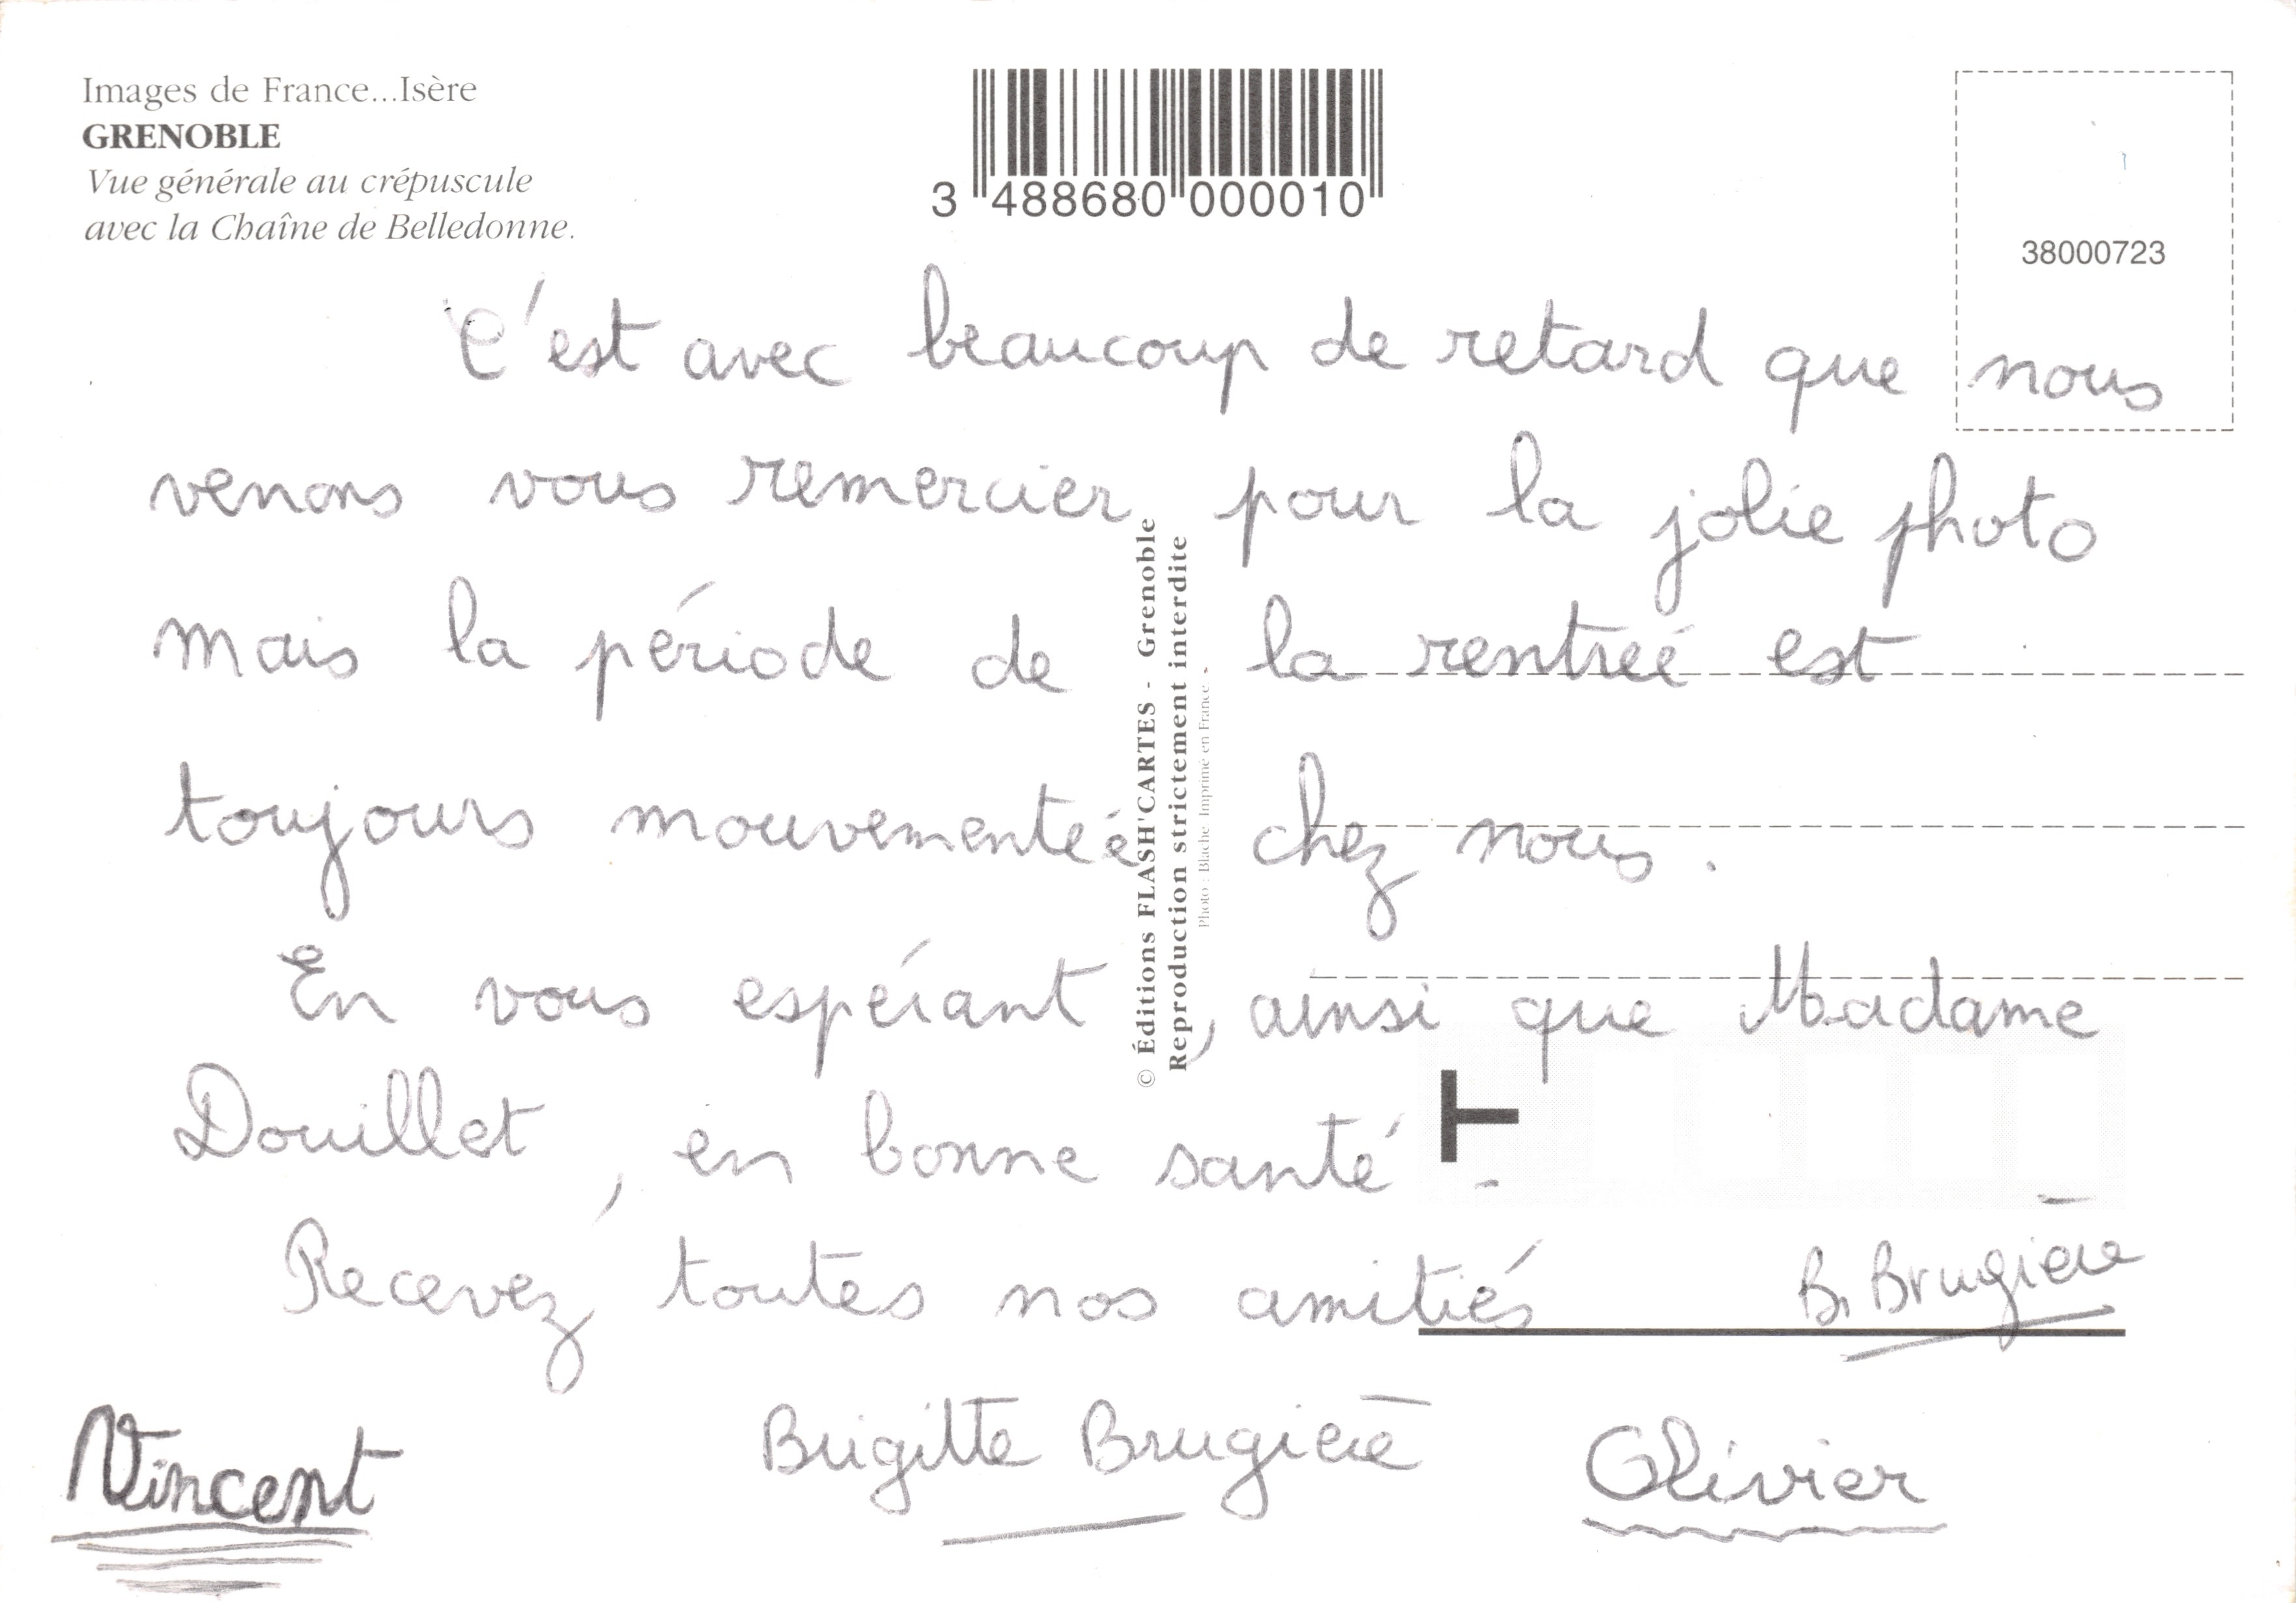 Images de France...Isère
GRENOBLE
Vue générale au crépuscule
avec la Chaîne de Belledonne.
3 488680 000010
38000723
C'est avec beaucoup de retard que nous
venons vous remercier pour la jolie photo
mais la période de la rentrée est
toujours mouvementée chez nous.
En vous espérant, ainsi que Madame
Douillet, en bonne santé.
Recevez toutes nos amitiés
B. Brugière
Vincent
Brigitte Brugière
Olivier
© Éditions FLASH'CARTES - Grenoble
Reproduction strictement interdite
Photo : Blache Imprimé en France -
T